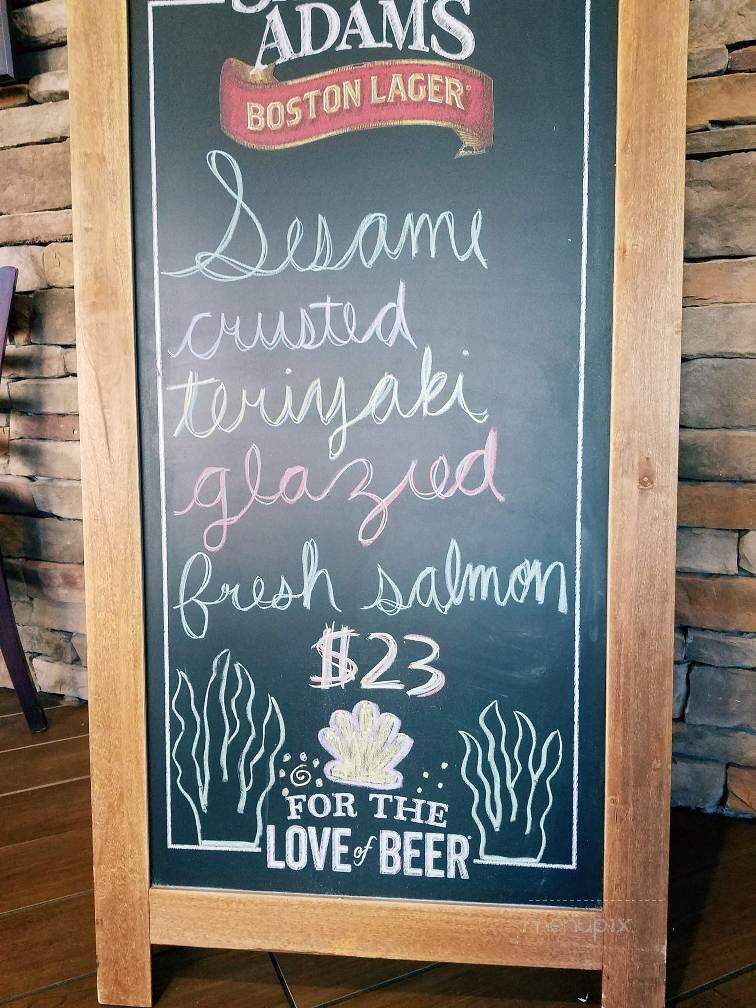 ADAMS
BOSTON LAGER
Sesame
crusted
teriyaki
glazed
fresh salmon
$23
FOR THE
LOVE of BEER
menupix